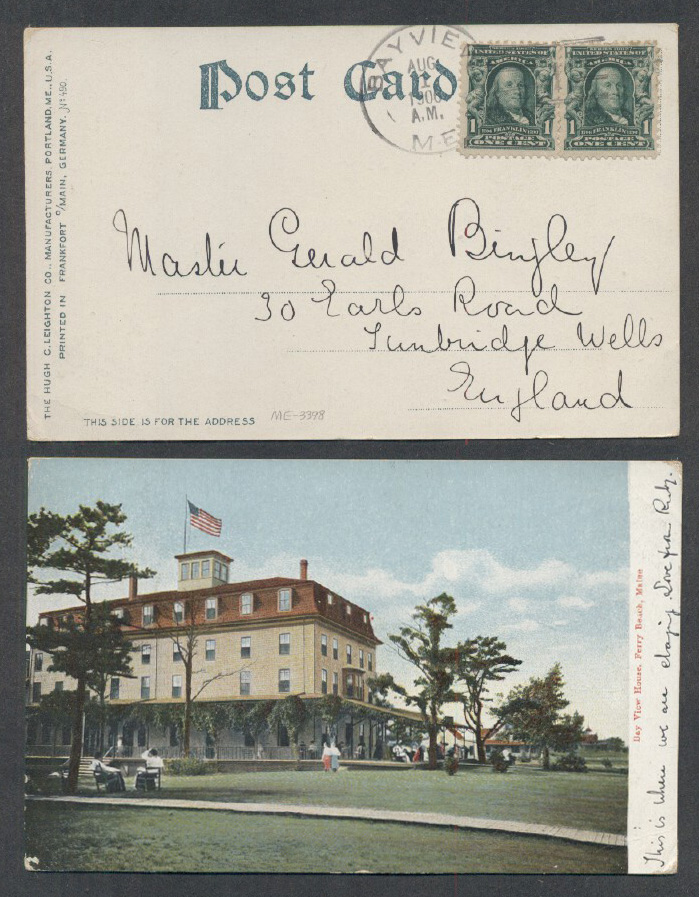 THE HUGH C. LEIGHTON CO., MANUFACTURERS, PORTLAND, ME., U.S.A.
PRINTED IN FRANKFORT o/MAIN, GERMANY. No 490.
Post Card
BAYVIEW
AUG
1
1906
A.M.
ME
SERIES 1902
UNITED STATES OF
AMERICA
1706 FRANKLIN 1790
1 1
POSTAGE
ONE CENT
SERIES 1902
UNITED STATES OF
AMERICA
1706 FRANKLIN 1790
1 1
POSTAGE
ONE CENT
Master Gerald Bingley
30 Earls Road
Tunbridge Wells
England
THIS SIDE IS FOR THE ADDRESS
ME-3398
Bay View House, Ferry Beach, Maine
This is where we are staying Love from